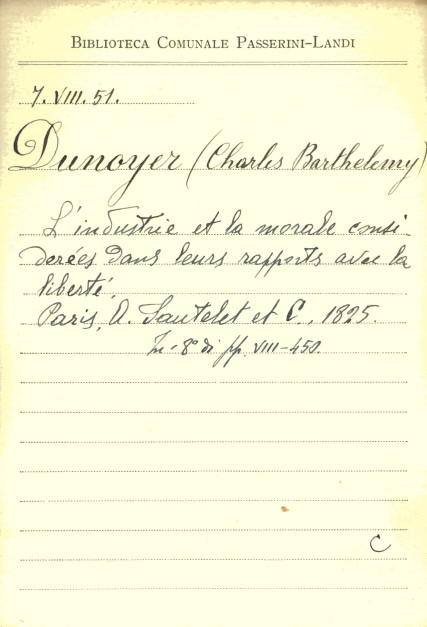 BIBLIOTECA COMUNALE PASSERINI-LANDI
7. VIII. 51.
Dunoyer (Charles Barthelemy)
L'industrie et la morale consi-
derées dans leurs rapports avec la
liberté.
Paris, A. Sautelet et C., 1825.
In-8° di pp. VIII-450.
C